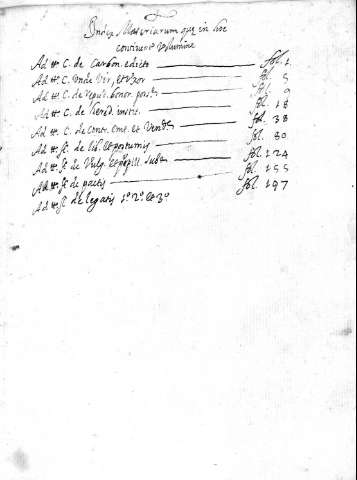 Index Materiarum quæ in hoc
continentur volumine
Ad tt. C. de Carbon. edicto fol. 1
Ad tt. C. Unde Vir, et Uxor fol. 5
Ad tt. C. de repud. bonor. poss. fol. 9
Ad tt. C. de hered. instit. fol. 18
Ad tt. C. de Contr. Emt. et Vend. fol. 38
Ad tt. ff. de lib. et postumis fol. 80
Ad tt. ff. de Vulg. et pupill. subst. fol. 124
Ad tt. ff. de pactis fol. 155
Ad tt. ff. de legatis 1º. 2º. et 3º. fol. 197